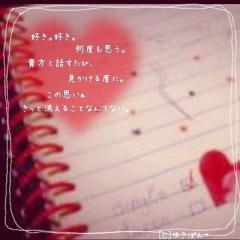 好き。好き。
何度も思う。
貴方と話すたび、
見かける度に。
この思いゎ
きっと消えることなんてない。
[○]ゆきぽん*